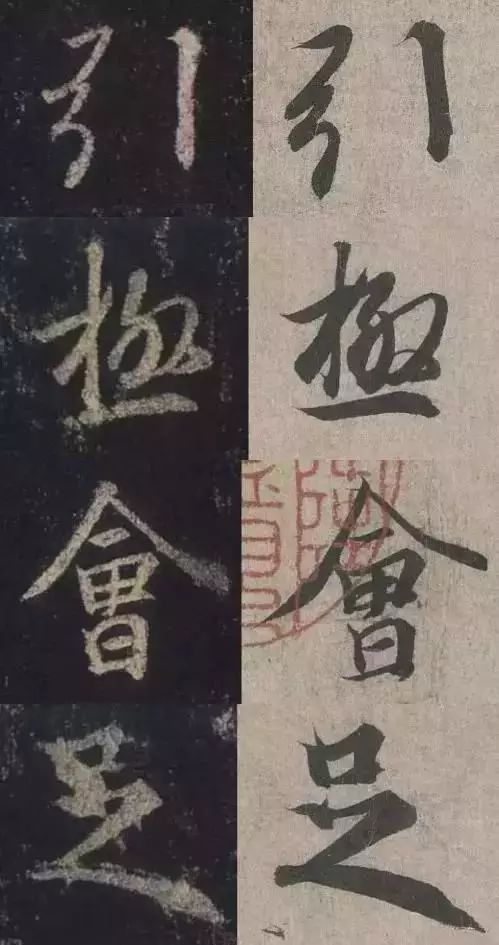 引 引
極 極
會 會
足 足